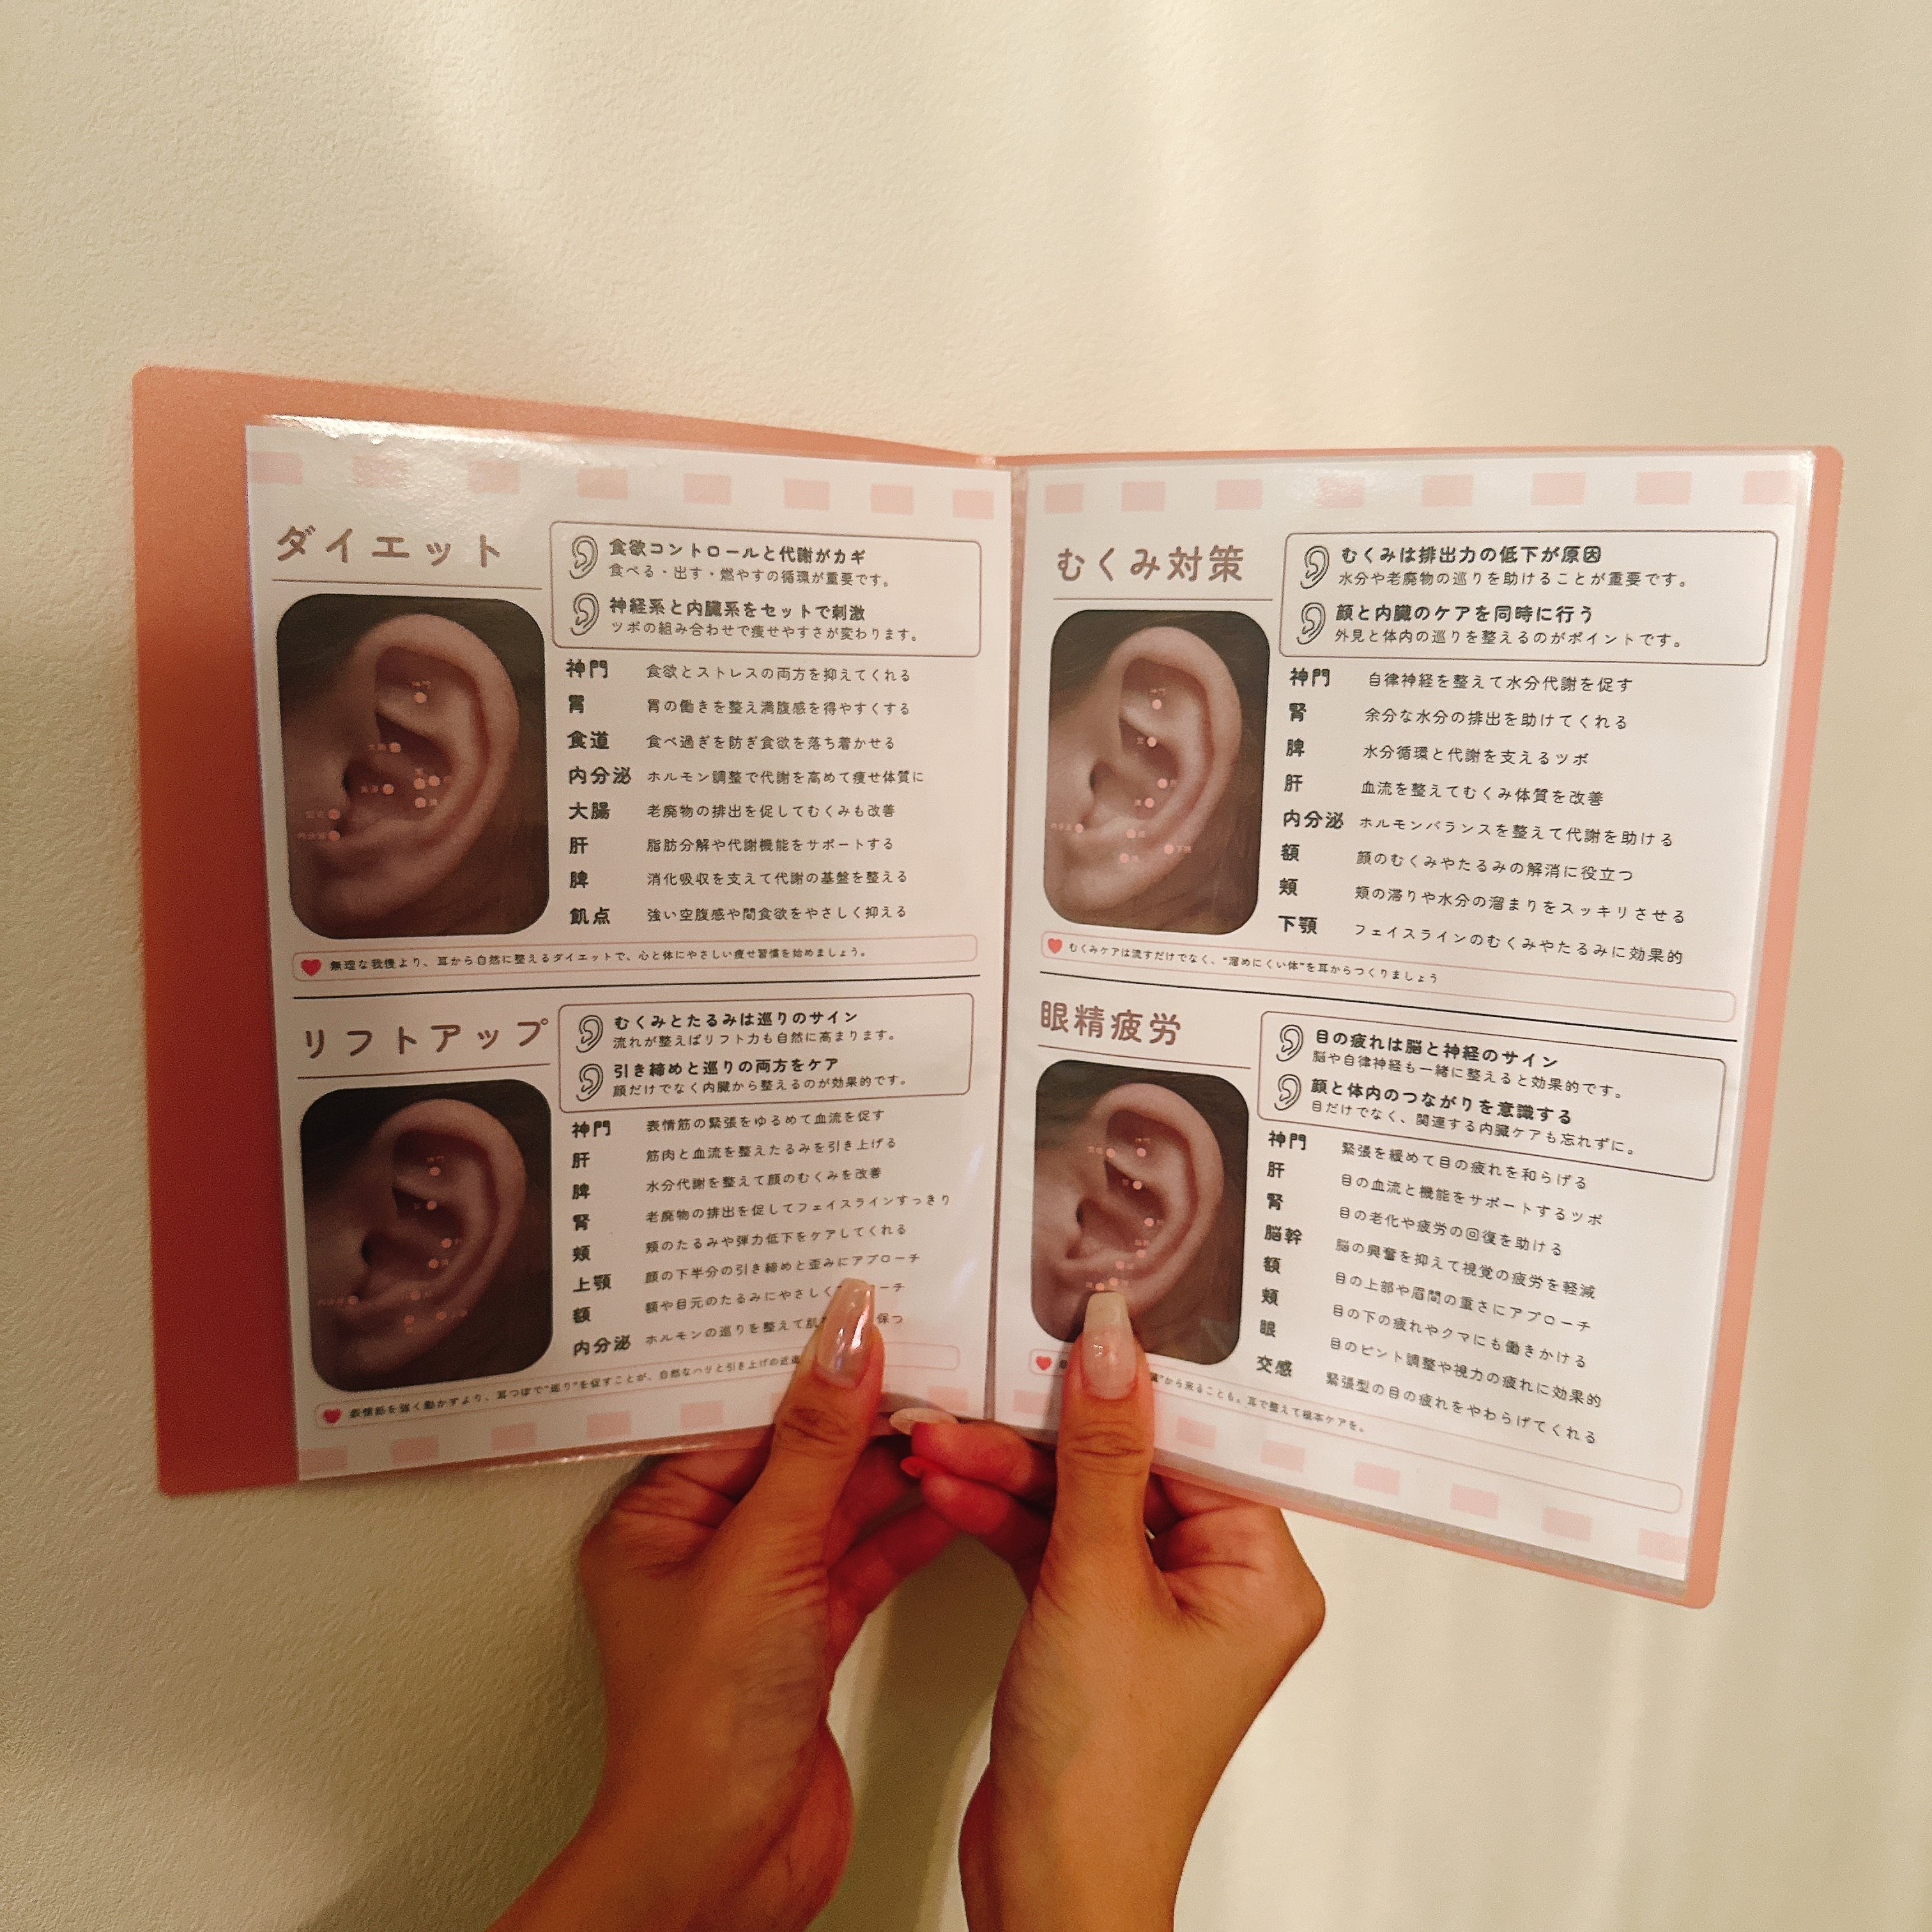 ダイエット
食欲コントロールと代謝がカギ
食べる・出す・燃やすの循環が重要です。
神経系と内臓系をセットで刺激
ツボの組み合わせで痩せやすさが変わります。
神門 食欲とストレスの両方を抑えてくれる
胃 胃の働きを整え満腹感を得やすくする
食道 食べ過ぎを防ぎ食欲を落ち着かせる
内分泌 ホルモン調整で代謝を高めて痩せ体質に
大腸 老廃物の排出を促してむくみも改善
肝 脂肪分解や代謝機能をサポートする
脾 消化吸収を支えて代謝の基盤を整える
飢点 強い空腹感や間食欲をやさしく抑える
無理な我慢より、耳から自然に整えるダイエットで、心と体にやさしい痩せ習慣を始めましょう。
リフトアップ
むくみとたるみは巡りのサイン
流れが整えばリフト力も自然に高まります。
引き締めと巡りの両方をケア
顔だけでなく内臓から整えるのが効果的です。
神門 表情筋の緊張をゆるめて血流を促す
肝 筋肉と血流を整えたるみを引き上げる
脾 水分代謝を整えて顔のむくみを改善
腎 老廃物の排出を促してフェイスラインすっきり
頬 頬のたるみや弾力低下をケアしてくれる
上顎 顔の下半分の引き締めと歪みにアプローチ
額 額や目元のたるみにやさしく ーチ
内分泌 ホルモンの巡りを整えて肌 保つ
表情筋を強く動かすより、耳つぼで"巡り"を促すことが、自然なハリと引き上げの近道
むくみ対策
むくみは排出力の低下が原因
水分や老廃物の巡りを助けることが重要です。
顔と内臓のケアを同時に行う
外見と体内の巡りを整えるのがポイントです。
神門 自律神経を整えて水分代謝を促す
腎 余分な水分の排出を助けてくれる
脾 水分循環と代謝を支えるツボ
肝 血流を整えてむくみ体質を改善
内分泌 ホルモンバランスを整えて代謝を助ける
額 顔のむくみやたるみの解消に役立つ
頬 頬の滞りや水分の溜まりをスッキリさせる
下顎 フェイスラインのむくみやたるみに効果的
むくみケアは流すだけでなく、"溜めにくい体"を耳からつくりましょう
眼精疲労
目の疲れは脳と神経のサイン
脳や自律神経も一緒に整えると効果的です。
顔と体内のつながりを意識する
目だけでなく、関連する内臓ケアも忘れずに。
神門 緊張を緩めて目の疲れを和らげる
肝 目の血流と機能をサポートするツボ
腎 目の老化や疲労の回復を助ける
脳幹 脳の興奮を抑えて視覚の疲労を軽減
額 目の上部や眉間の重さにアプローチ
頬 目の下の疲れやクマにも働きかける
眼 目のピント調整や視力の疲れに効果的
交感 緊張型の目の疲れをやわらげてくれる
"から来ることも。耳で整えて根本ケアを。